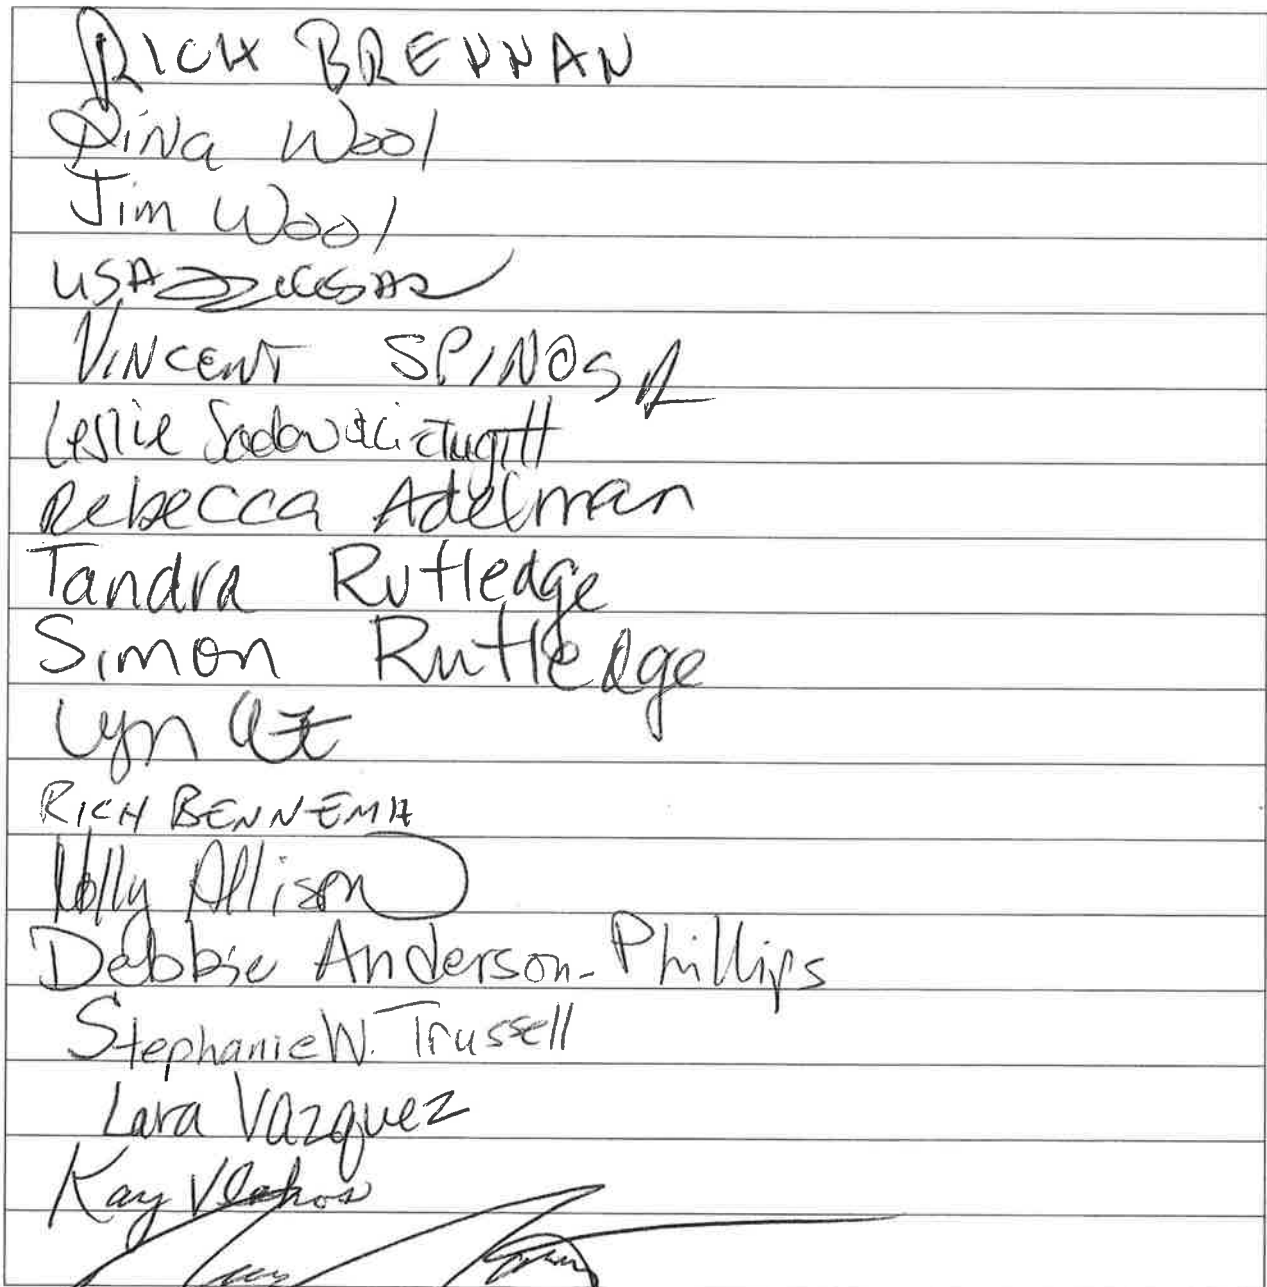 RICH BRENNAN
Dina Wool
Jim Wool
LISA
VINCENT SPINOSA
Leslie
Rebecca Adelman
Tandra Rutledge
Simon Rutledge
Lyn
RICH BENNEMA
Holly Allison
Debbie Anderson-Phillips
Stephanie W. Trussell
Lara Vazquez
Kay Vlahos